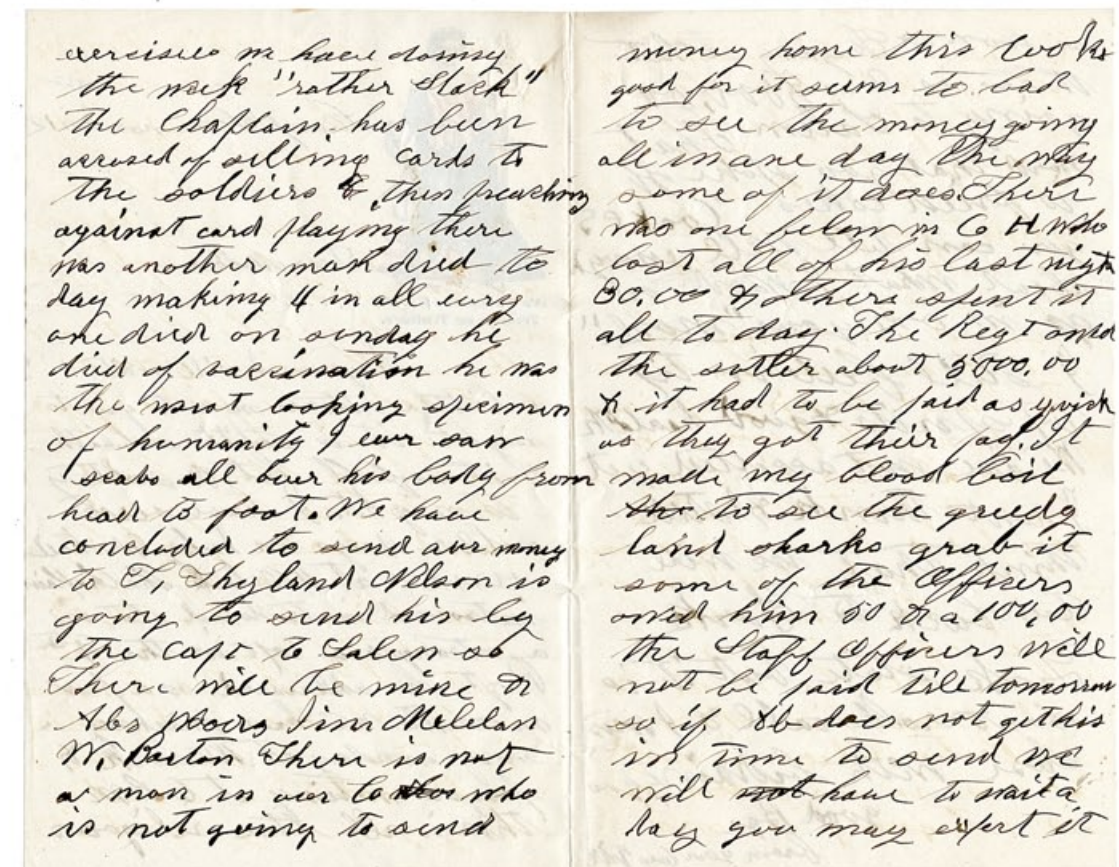 exercises we have doing
the week "rather Slack"
the Chaplain. has been
accused of selling cards to
the soldiers & then preaching
against card playing there
was another man died to
day making 4 in all
one died on sunday he
died of vaccination he was
the worst looking specimen
of humanity I ever saw
scabs all over his body from
head to foot. We have
concluded to send our money
to T, Nelson is
going to send his by
the Capt to Salem so
There will be mine &
Abs Jim
W, Barton There is not
a man in our Co who
is not going to send
money home this looks
good for it seems to bad
to see the money going
all in one day the way
some of it does. There
was one felow in Co H who
lost all of his last night
30.00 & others spent it
all to day. The Regt owed
the sutler about 5000,00
& it had to be paid as quick
as they got their pay. It
made my blood boil
to see the greedy
land sharks grab it
some of the Officers
owed him 50 & a 100,00
the Staff Officers will
not be paid till tomorrow
so if Ab does not get his
in time to send we
will have to wait a
day you may expect it